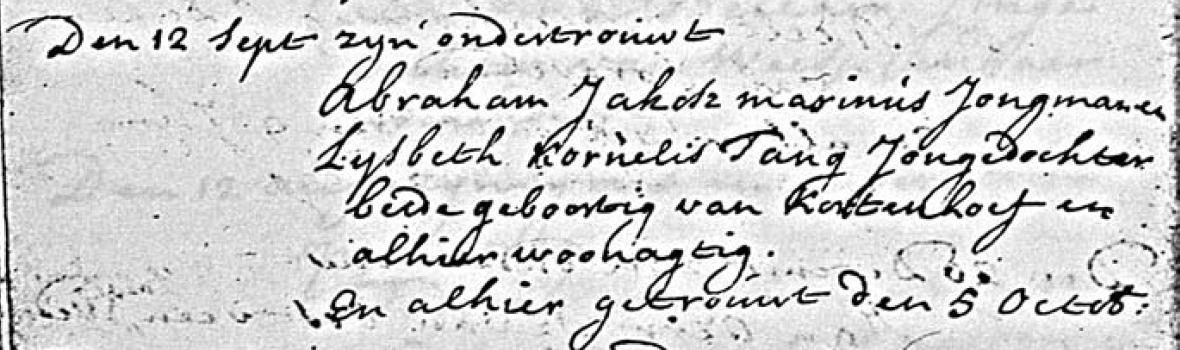 Den 12 Sept zyn ondertrouwt
Abraham Jakobz marinus Jongman en
Lysbeth Kornelis Tang Jongedochter
beide geboortig van Kortenhoef en
alhier woonagtig.
En alhier getrouwt den 5 Octob: